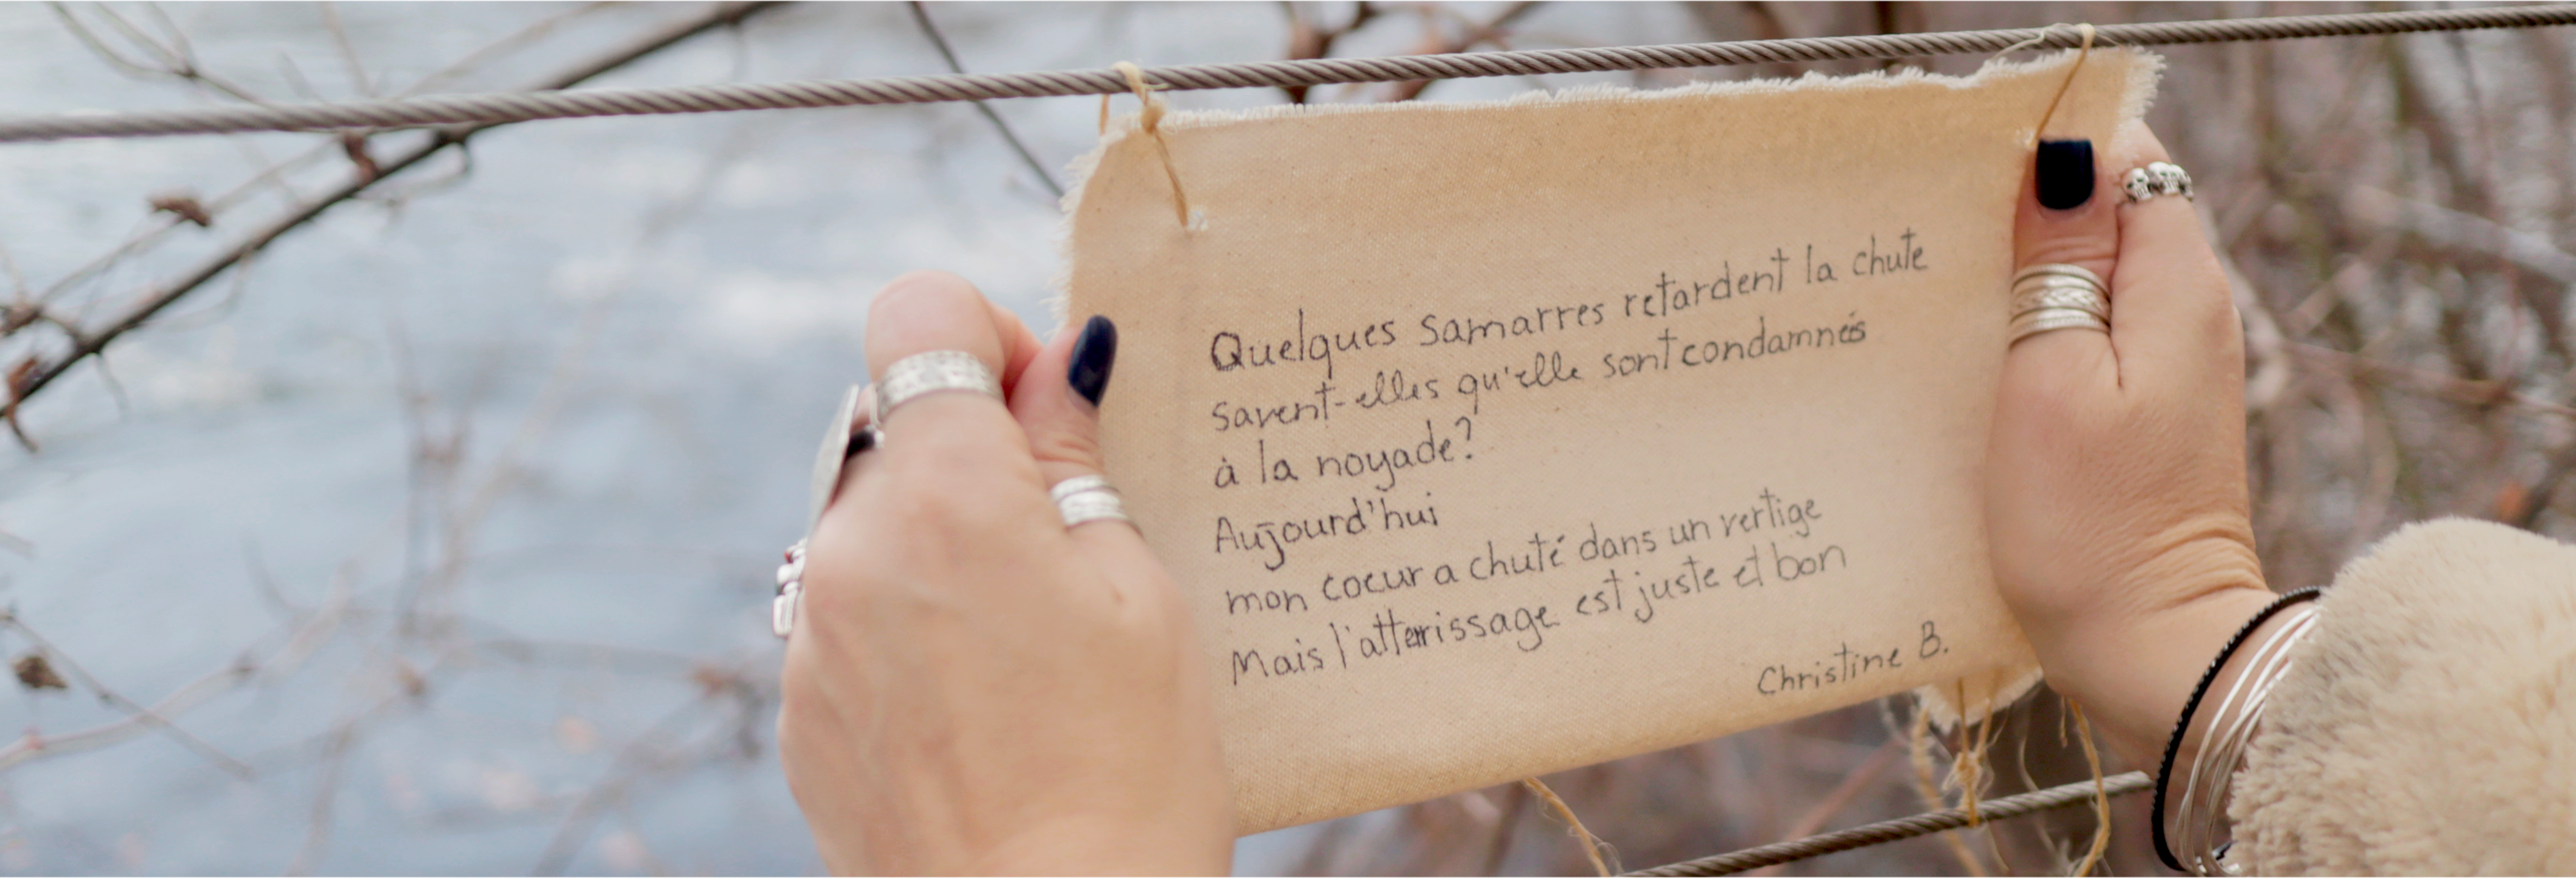 Quelques samarres retardent la chute
savent-elles qu'elle sont condamnés
à la noyade?
Aujourd'hui
mon coeur a chuté dans un vertige
Mais l'atterrissage est juste et bon
Christine B.